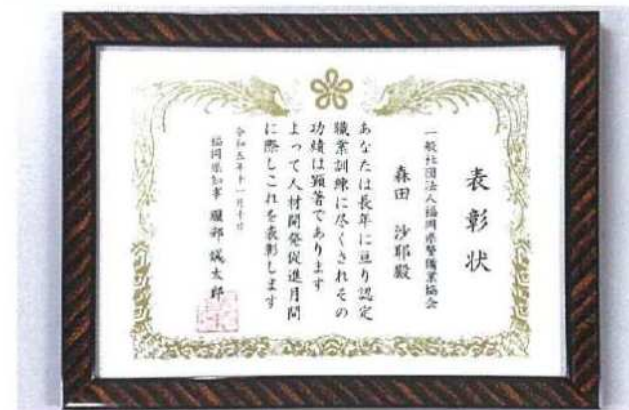 表彰状
一般社団法人福岡県畳職業協会
森田 沙耶殿
あなたは長年に亘り認定
職業訓練に尽くされその
功績は顕著であります
よって人材開発促進月間
に際しこれを表彰します
令和五年十一月十日
福岡県知事 服部 誠太郎